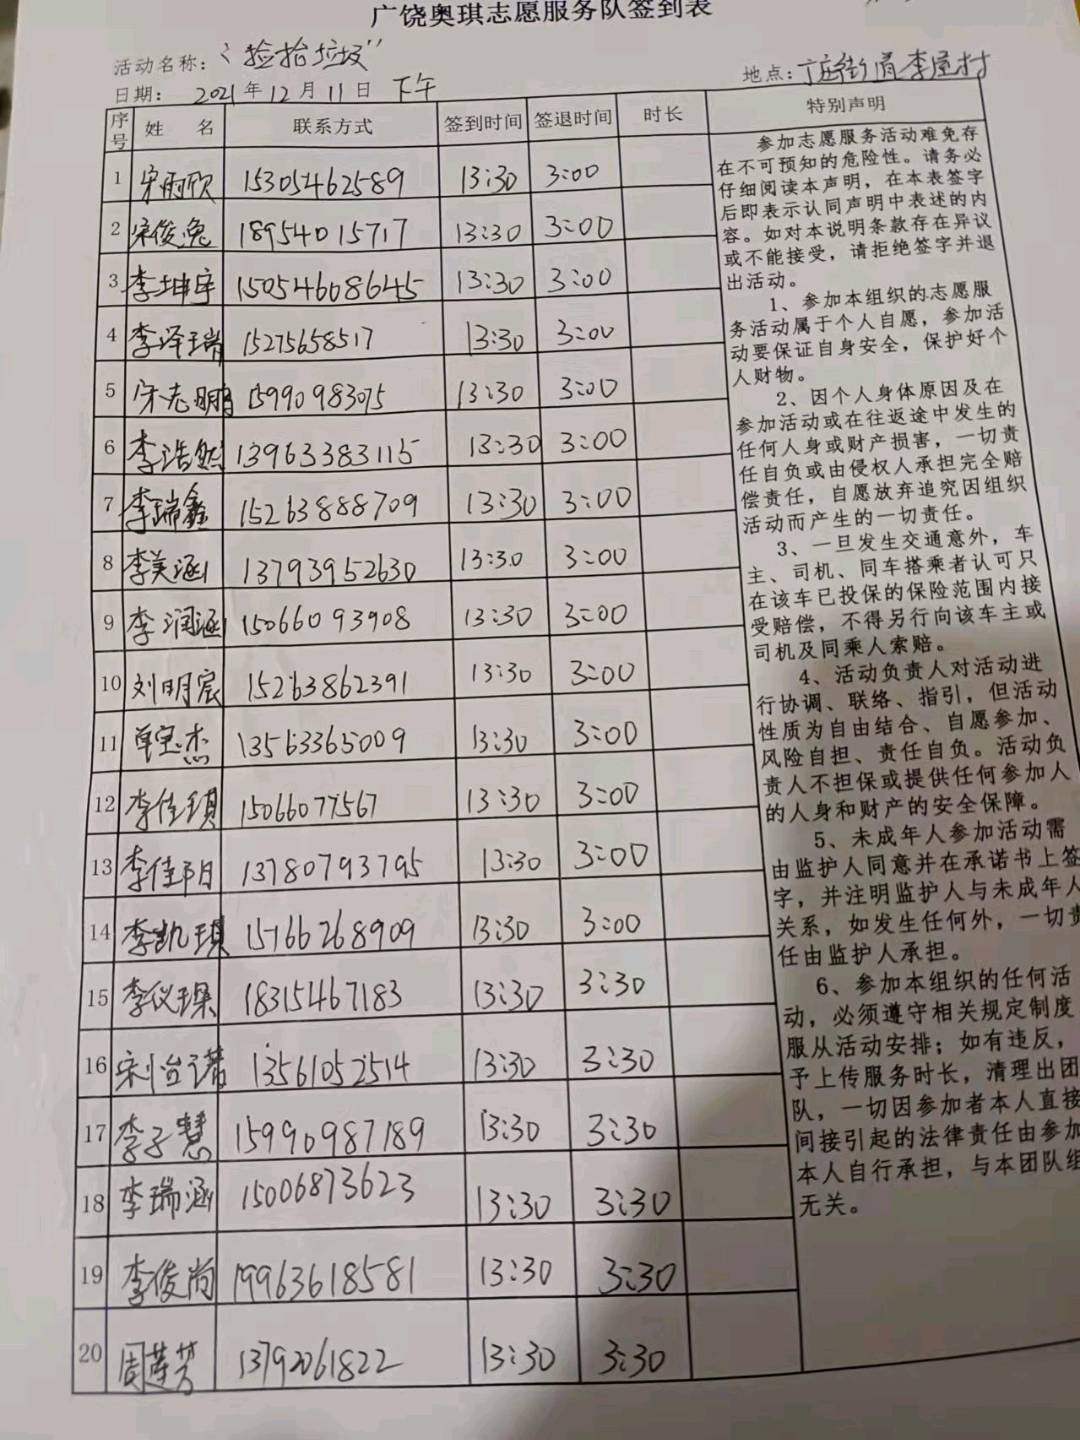 广饶奥琪志愿服务队签到表
活动名称：“捡拾垃圾”
地点：街道李屋村
日期： 2021年12月11日 下午
序号 姓 名 联系方式 签到时间 签退时间 时长 特别声明
1 宋雨欣 15305462589 13:30 3:00
2 宋俊逸 18954015717 13:30 3:00
3 李坤宇 15054608645 13:30 3:00
4 李泽瑞 15275658517 13:30 3:00
5 宋志鹏 15990983075 13:30 3:00
6 李浩然 13963383115 13:30 3:00
7 李瑞鑫 15263888709 13:30 3:00
8 李美涵 13793952630 13:30 3:00
9 李润涵 15066093908 13:30 3:00
10 刘明宸 15263862391 13:30 3:00
11 单宝杰 13563365009 13:30 3:00
12 李佳琪 15066077567 13:30 3:00
13 李佳阳 13780793795 13:30 3:00
14 李凯琪 15766268909 13:30 3:00
15 李仪璟 18315467183 13:30 3:30
16 13561052514 13:30 3:30
17 李子慧 15990987189 13:30 3:30
18 李瑞涵 15006873623 13:30 3:30
19 李俊尚 19963618581 13:30 3:30
20 周莲芳 13792061822 13:30 3:30
参加志愿服务活动难免存
在不可预知的危险性。请务必
仔细阅读本声明，在本表签字
后即表示认同声明中表述的内
容。如对本说明条款存在异议
或不能接受，请拒绝签字并退
出活动。
1、参加本组织的志愿服
务活动属于个人自愿，参加活
动要保证自身安全，保护好个
人财物。
2、因个人身体原因及在
参加活动或在往返途中发生的
任何人身或财产损害，一切责
任自负或由侵权人承担完全赔
偿责任，自愿放弃追究因组织
活动而产生的一切责任。
3、一旦发生交通意外，车
主、司机、同车搭乘者认可只
在该车已投保的保险范围内接
受赔偿，不得另行向该车主或
司机及同乘人索赔。
4、活动负责人对活动进
行协调、联络、指引，但活动
性质为自由结合、自愿参加、
风险自担、责任自负。活动负
责人不担保或提供任何参加人
的人身和财产的安全保障。
5、未成年人参加活动需
由监护人同意并在承诺书上签
字，并注明监护人与未成年人
关系，如发生任何外，一切责
任由监护人承担。
6、参加本组织的任何活
动，必须遵守相关规定制度
服从活动安排；如有违反，
予上传服务时长，清理出团
队，一切因参加者本人直接
间接引起的法律责任由参加
本人自行承担，与本团队组
无关。